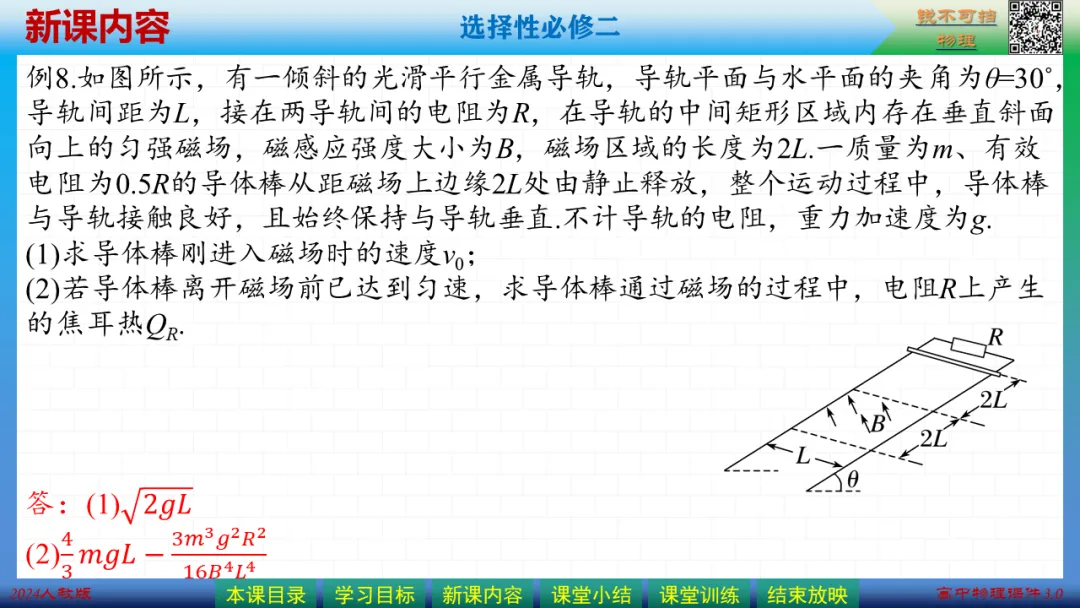 新课内容
选择性必修二
锐不可挡
物理
例8.如图所示，有一倾斜的光滑平行金属导轨，导轨平面与水平面的夹角为θ=30°，
导轨间距为L，接在两导轨间的电阻为R，在导轨的中间矩形区域内存在垂直斜面
向上的匀强磁场，磁感应强度大小为B，磁场区域的长度为2L.一质量为m、有效
电阻为0.5R的导体棒从距磁场上边缘2L处由静止释放，整个运动过程中，导体棒
与导轨接触良好，且始终保持与导轨垂直.不计导轨的电阻，重力加速度为g.
(1)求导体棒刚进入磁场时的速度v₀；
(2)若导体棒离开磁场前已达到匀速，求导体棒通过磁场的过程中，电阻R上产生
的焦耳热Q_R.
R
2L
B
2L
L
θ
答：(1)√(2gL)
(2)4/3 mgL − 3m³g²R²/16B⁴L⁴
2024人教版
本课目录 学习目标 新课内容 课堂小结 课堂训练 结束放映
高中物理课件3.0